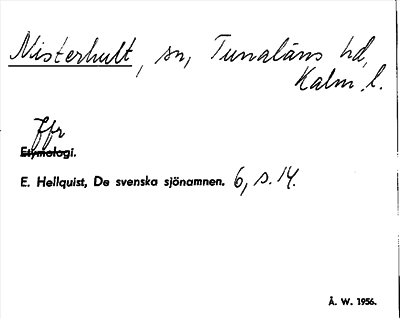 Nisterhult, sn, Tunaläns hd,
Kalm. l.
Jfr
Etymologi.
E. Hellquist, De svenska sjönamnen. 6, s. 14.
Å. W. 1956.